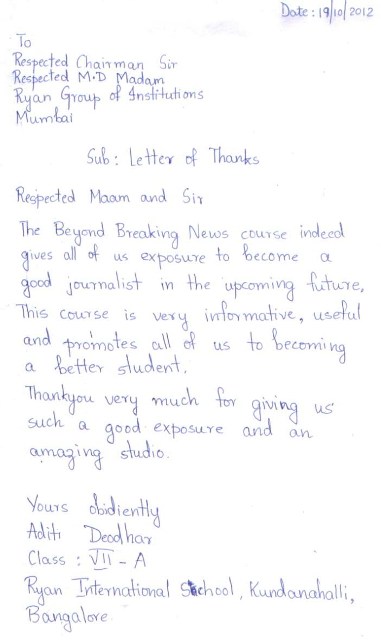 Date : 19/10/2012
To
Respected Chairman Sir
Respected M.D Madam
Ryan Group of Institutions
Mumbai
Sub : Letter of Thanks
Respected Maam and Sir
The Beyond Breaking News course indeed
gives all of us exposure to become a
good journalist in the upcoming future,
This course is very informative, useful
and promotes all of us to becoming
a better student.
Thankyou very much for giving us
such a good exposure and an
amazing studio.
Yours obidiently
Aditi Deodhar
Class : VII - A
Ryan International School, Kundanahalli,
Bangalore